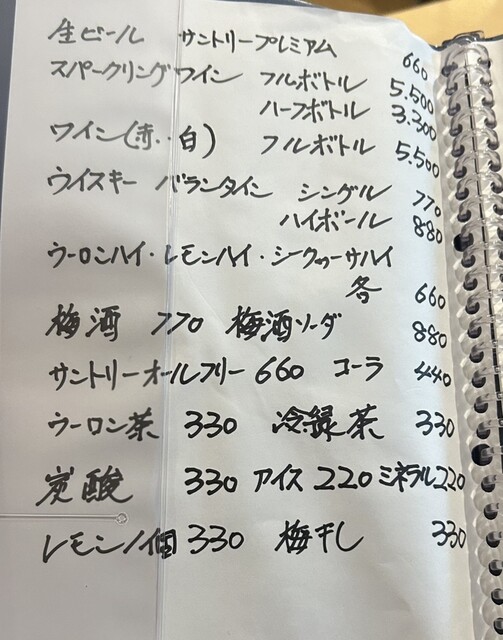 生ビール サントリープレミアム 660
スパークリングワイン フルボトル 5.500
ハーフボトル 3.300
ワイン(赤・白) フルボトル 5.500
ウイスキー バランタイン シングル 770
ハイボール 880
ウーロンハイ・レモンハイ・シークゥーサハイ
各 660
梅酒 770 梅酒ソーダ 880
サントリーオールフリー 660 コーラ 440
ウーロン茶 330 冷緑茶 330
炭酸 330 アイス 220 ミネラル 220
レモン1個 330 梅干し 330